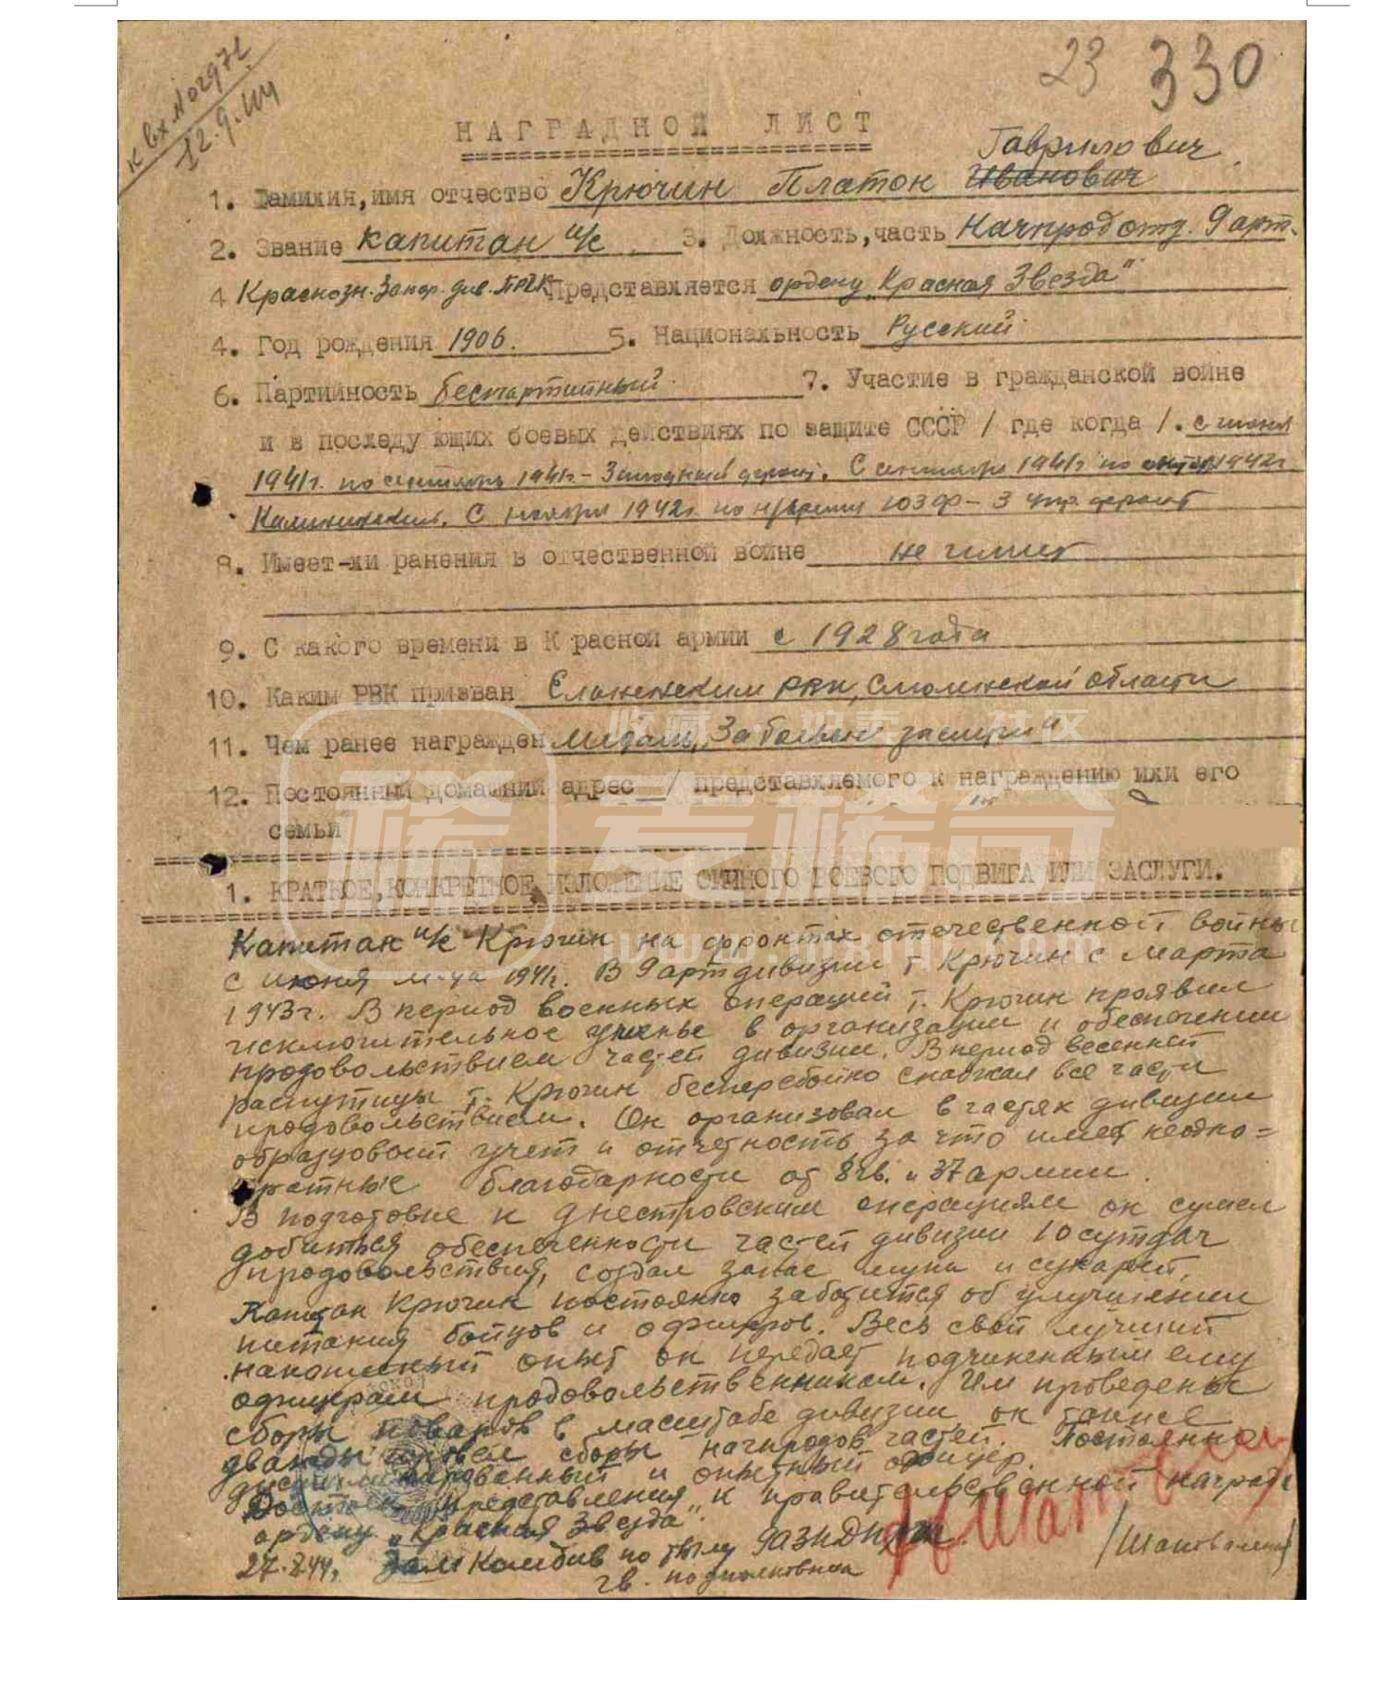 к вх № 02971
12.9.44
23 330
НАГРАДНОЙ ЛИСТ
Гаврилович
1. Фамилия, имя отчество Крючин Платон Иванович
2. Звание капитан и/с 3. Должность, часть Начпродотд. 9 арт.
4 Краснозн. Запор. див. ПРГК Представляется ордену „Красная Звезда"
4. Год рождения 1906. 5. Национальность Русский
6. Партийность беспартийный. 7. Участие в гражданской войне
и в последующих боевых действиях по защите СССР / где когда /. с июня
1941г. по сентябрь 1941г. – Западный фронт. С сентября 1941г. по 1942г
Калининский. С ноября 1942г. по н/время ЮЗФ – 3 Укр. фронт
8. Имеет-ли ранения в отчественной войне не имеет
9. С какого времени в Красной армии с 1928 года
10. Каким РВК призван РВК, Смоленской области
11. Чем ранее награжден медаль „За боевые заслуги"
12. Постоянный домашний адрес / представляемого к награждению или его
семьи
收藏 · 拍卖 · 社区
麦稀奇
1. КРАТКОЕ, КОНКРЕТНОЕ ИЗЛОЖЕНИЕ ЛИЧНОГО БОЕВОГО ПОДВИГА ИЛИ ЗАСЛУГИ.
Капитан и/с Крючин на фронтах отечественной войны
с июня м-ца 1941г. В 9 артдивизии т. Крючин с марта
1943г. В период военных операций т. Крючин проявил
исключительное уменье в организации и обеспечении
продовольствием частей дивизии. В период весенней
распутицы т. Крючин бесперебойно снабжал все части
продовольствием. Он организовал в частях дивизии
образцовый учет и отчетность за что имеет неодно=
кратные благодарности от 8 гв. и 37 армии.
В подготовке к днестровским операциям он сумел
добиться обеспеченности частей дивизии 10 сутдач
продовольствия, создал запас муки и сухарей.
Капитан Крючин постоянно заботится об улучшении
питания бойцов и офицеров. Весь свой лучший
накопленный опыт он передает подчиненным ему
офицерам продовольственникам. Им проведены
сборы поваров в масштабе дивизии, он также
дважды провел сборы начпродов частей. Постоянно
дисциплинированный и опытный офицер.
Достоин представления к правительственной награде
ордену „Красная Звезда".
27.8.44. Зам комдив по тылу 9 АЗКДПРГК
гв. подполковник